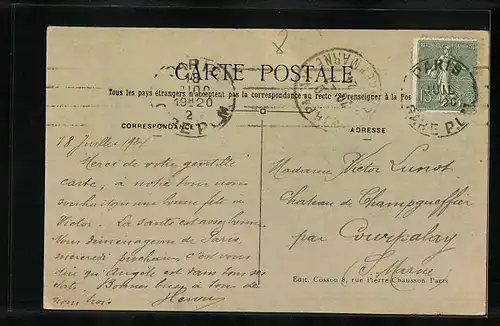 8
CARTE POSTALE
Tous les pays étrangers n'acceptent pas la correspondance au recto (se renseigner à la Poste
CORRESPONDANCE
ADRESSE
18 Juillet 192
Merci de votre gentille
carte, à notre tour nous
souhaitons une bonne fête à
Victor. La santé est assez bonne
Nous déménageons de Paris
mercredi prochain, c'est vous
dire qu'Angèle est dans tous ses
états. Bonnes bises à tous de
nous trois Henry
Madame Victor
Château de Champgueffier
par Courpalay
(S. Marne)
Edit. Cosson 8, rue Pierre-Chausson Paris
PARIS
18
1920
2
GARE P.L.M
PARIS
GARE P.L.M
15